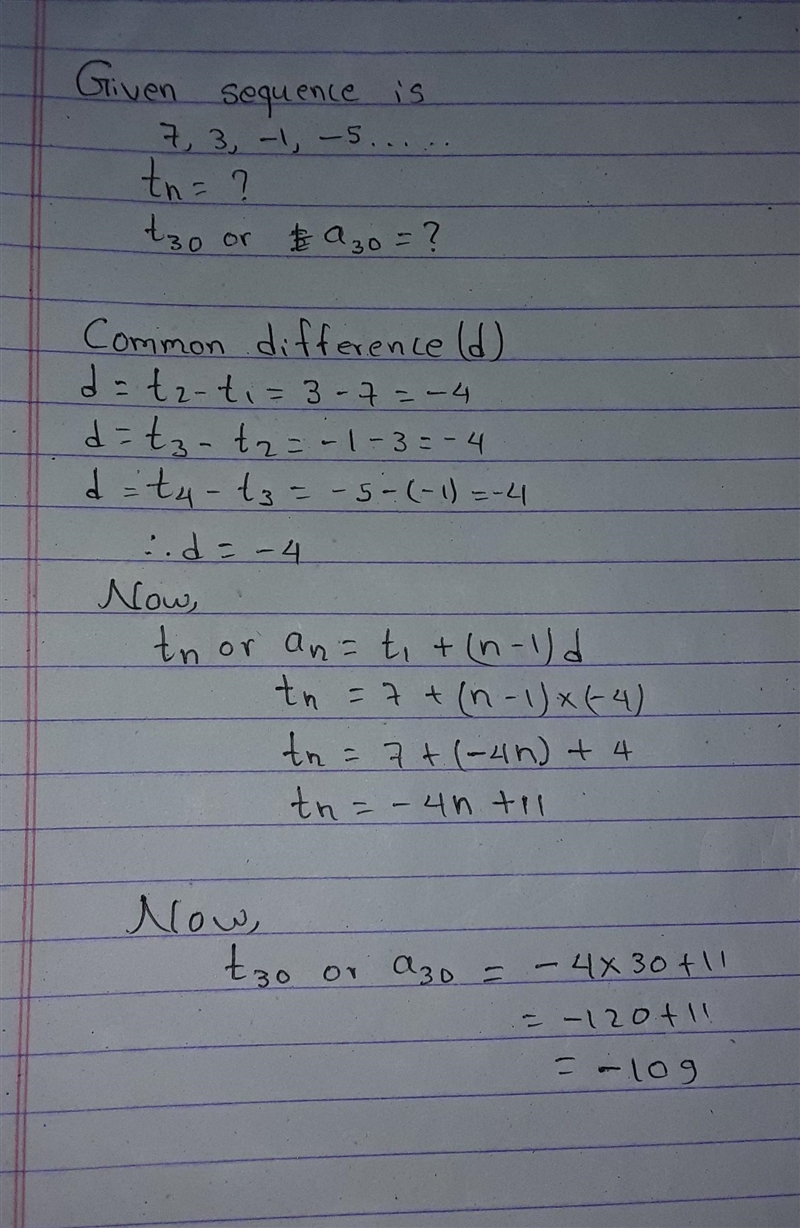 Given sequence is
7, 3, -1, -5......
tn = ?
t30 or a30 = ?
Common difference (d)
d = t2 - t1 = 3 - 7 = -4
d = t3 - t2 = -1 - 3 = -4
d = t4 - t3 = -5 - (-1) = -4
∴ d = -4
Now,
tn or an = t1 + (n-1)d
tn = 7 + (n-1)×(-4)
tn = 7 + (-4n) + 4
tn = -4n + 11
Now,
t30 or a30 = -4×30+11
= -120+11
= -109